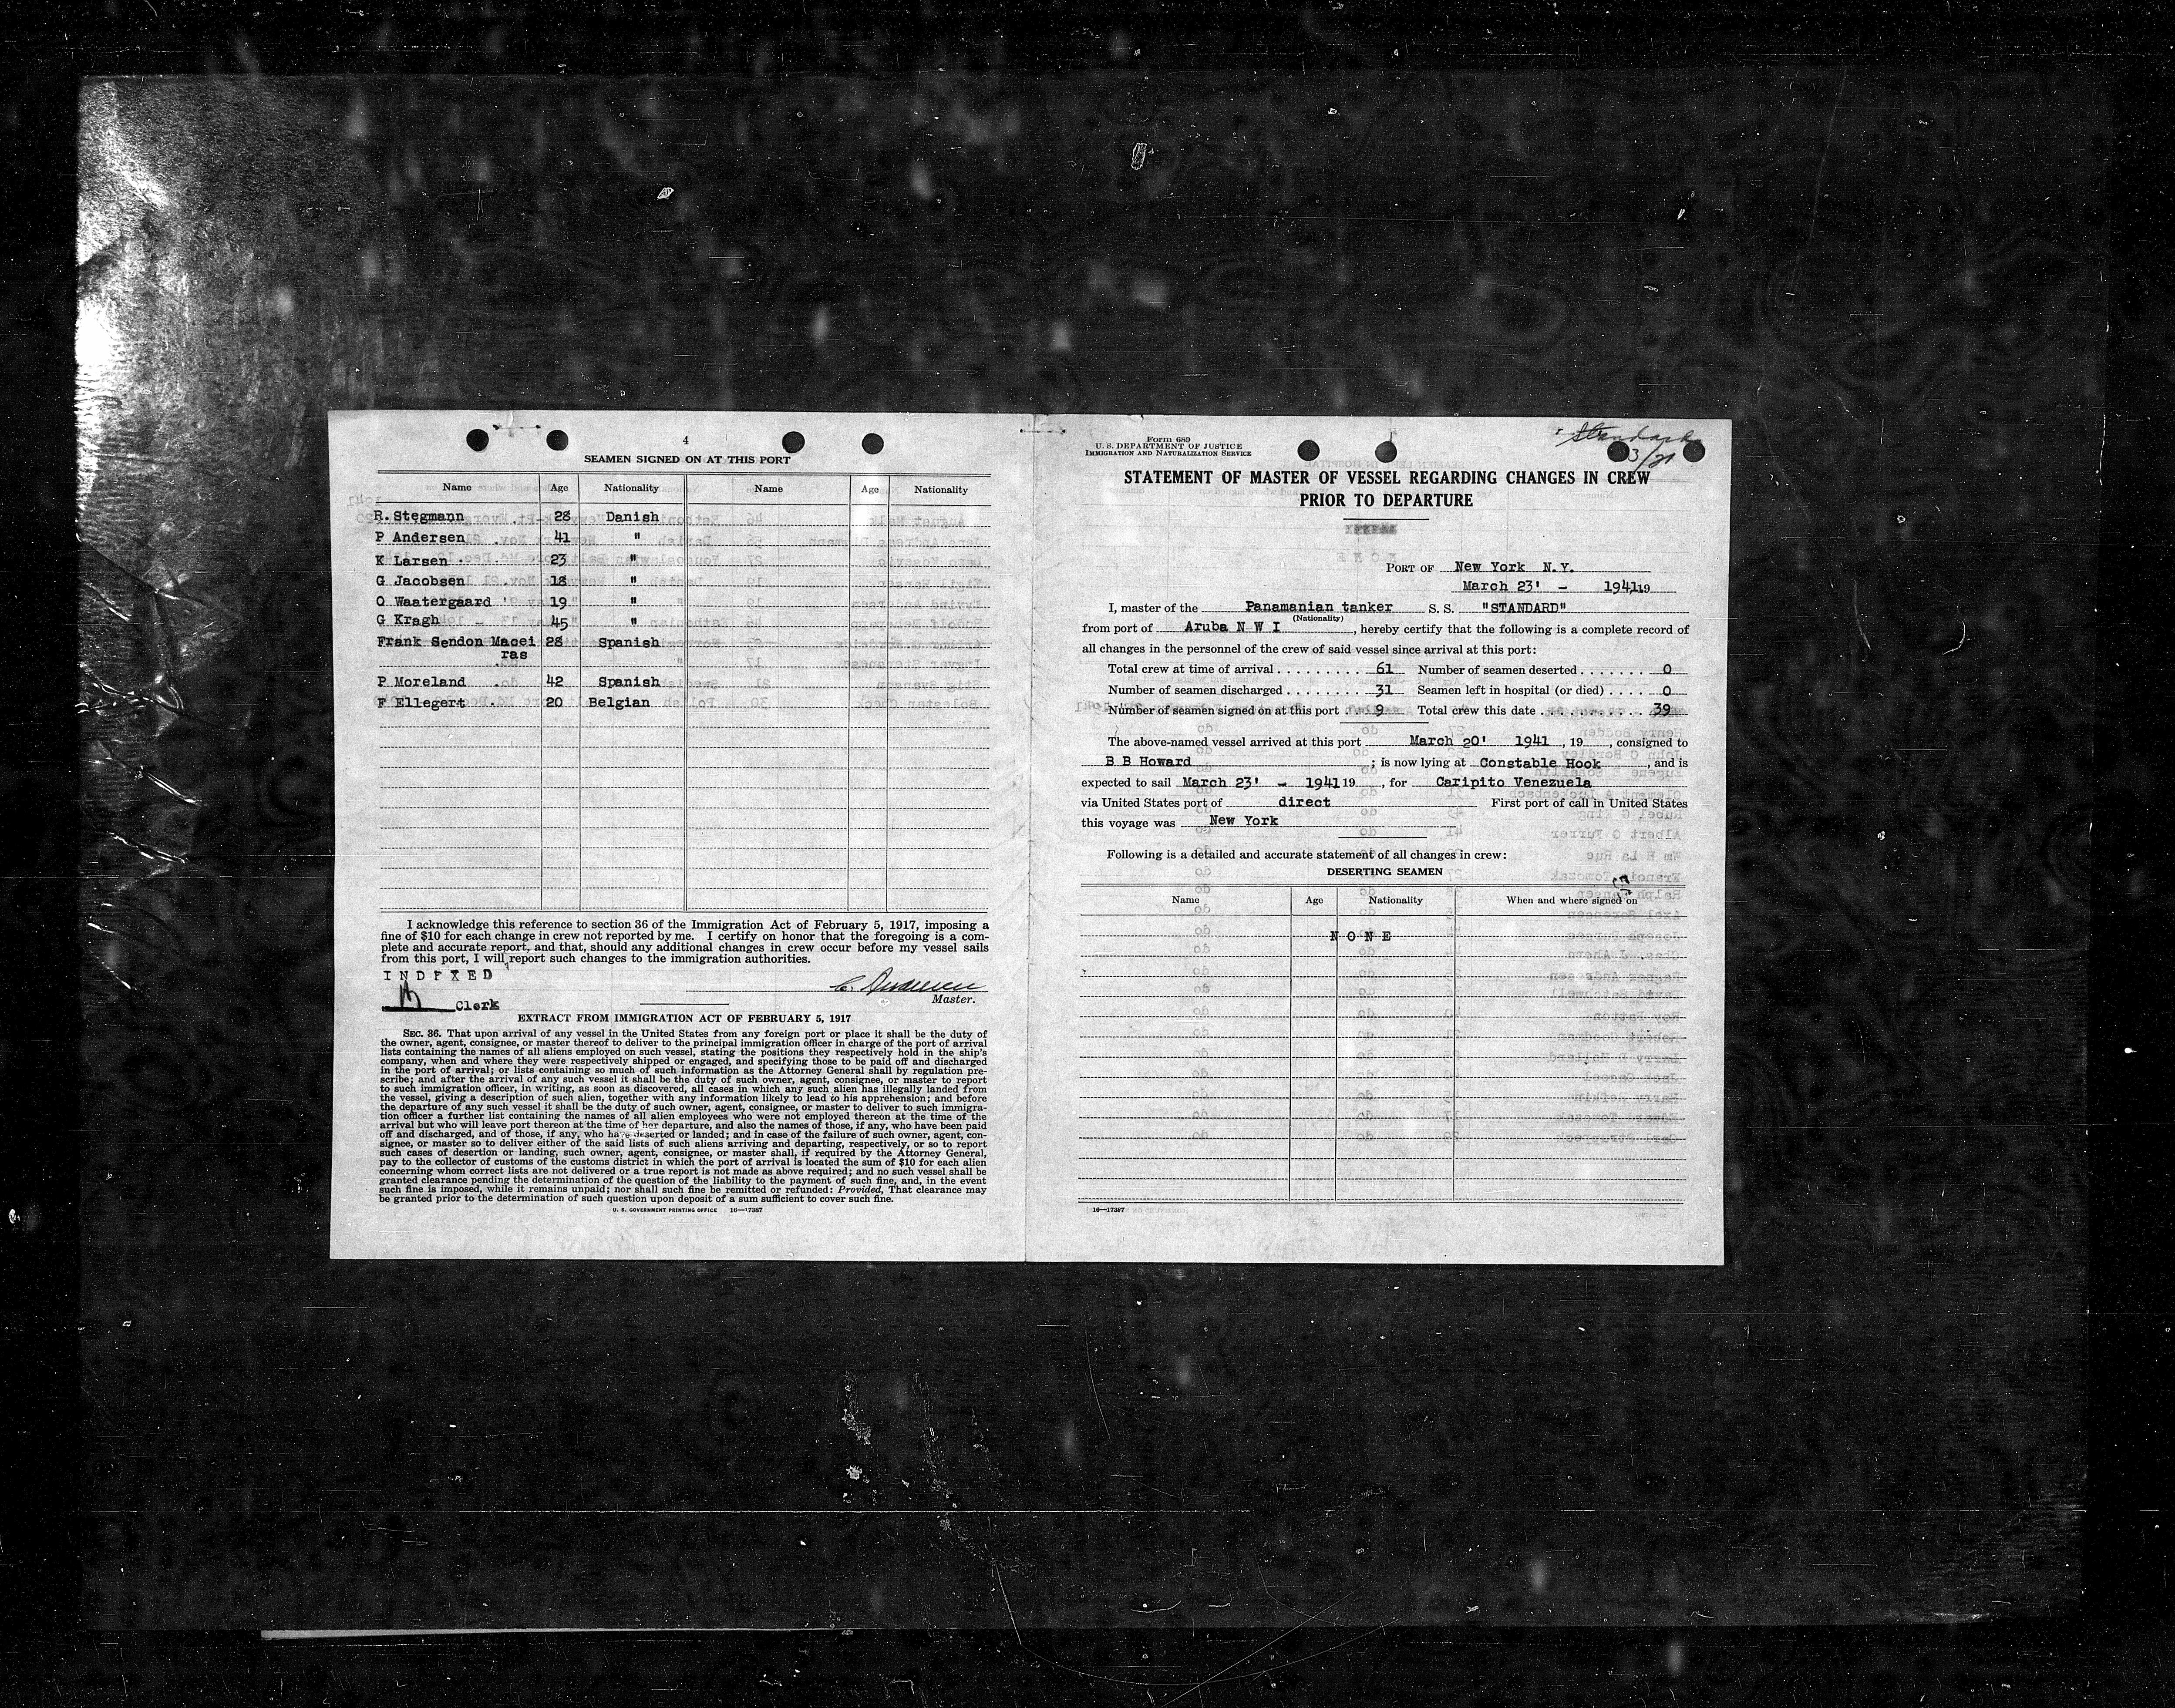 4
SEAMEN SIGNED ON AT THIS PORT
Name Age Nationality Name Age Nationality
R. Stegmann 28 Danish
P Andersen 41 "
K Larsen 23 "
G Jacobsen 18 "
O Waatergaard 19 "
G Kragh 45 "
Frank Sendon Macei 28 Spanish
ras
P Moreland 42 Spanish
F Ellegert 20 Belgian
I acknowledge this reference to section 36 of the Immigration Act of February 5, 1917, imposing a
fine of $10 for each change in crew not reported by me. I certify on honor that the foregoing is a com-
plete and accurate report, and that, should any additional changes in crew occur before my vessel sails
from this port, I will report such changes to the immigration authorities.
INDEXED
Clerk
Master.
EXTRACT FROM IMMIGRATION ACT OF FEBRUARY 5, 1917
SEC. 36. That upon arrival of any vessel in the United States from any foreign port or place it shall be the duty of
the owner, agent, consignee, or master thereof to deliver to the principal immigration officer in charge of the port of arrival
lists containing the names of all aliens employed on such vessel, stating the positions they respectively hold in the ship's
company, when and where they were respectively shipped or engaged, and specifying those to be paid off and discharged
in the port of arrival; or lists containing so much of such information as the Attorney General shall by regulation pre-
scribe; and after the arrival of any such vessel it shall be the duty of such owner, agent, consignee, or master to report
to such immigration officer, in writing, as soon as discovered, all cases in which any such alien has illegally landed from
the vessel, giving a description of such alien, together with any information likely to lead to his apprehension; and before
the departure of any such vessel it shall be the duty of such owner, agent, consignee, or master to deliver to such immigra-
tion officer a further list containing the names of all alien employees who were not employed thereon at the time of the
arrival but who will leave port thereon at the time of her departure, and also the names of those, if any, who have been paid
off and discharged, and of those, if any, who have deserted or landed; and in case of the failure of such owner, agent, con-
signee, or master so to deliver either of the said lists of such aliens arriving and departing, respectively, or so to report
such cases of desertion or landing, such owner, agent, consignee, or master shall, if required by the Attorney General,
pay to the collector of customs of the customs district in which the port of arrival is located the sum of $10 for each alien
concerning whom correct lists are not delivered or a true report is not made as above required; and no such vessel shall be
granted clearance pending the determination of the question of the liability to the payment of such fine, and, in the event
such fine is imposed, while it remains unpaid; nor shall such fine be remitted or refunded: Provided, That clearance may
be granted prior to the determination of such question upon deposit of a sum sufficient to cover such fine.
U. S. GOVERNMENT PRINTING OFFICE 16—17387
Form 689
U. S. DEPARTMENT OF JUSTICE
IMMIGRATION AND NATURALIZATION SERVICE
Standard
3/21
STATEMENT OF MASTER OF VESSEL REGARDING CHANGES IN CREW
PRIOR TO DEPARTURE
PORT OF New York N.Y.
March 23' - 1941 19
I, master of the Panamanian tanker S. S. "STANDARD"
(Nationality)
from port of Aruba N W I , hereby certify that the following is a complete record of
all changes in the personnel of the crew of said vessel since arrival at this port:
Total crew at time of arrival 61 Number of seamen deserted 0
Number of seamen discharged 31 Seamen left in hospital (or died) 0
Number of seamen signed on at this port 9 Total crew this date 39
The above-named vessel arrived at this port March 20' 1941 , 19 , consigned to
B B Howard ; is now lying at Constable Hook , and is
expected to sail March 23' - 1941 19 , for Caripito Venezuela
via United States port of direct First port of call in United States
this voyage was New York
Following is a detailed and accurate statement of all changes in crew:
DESERTING SEAMEN
Name Age Nationality When and where signed on
N O N E
16—17387